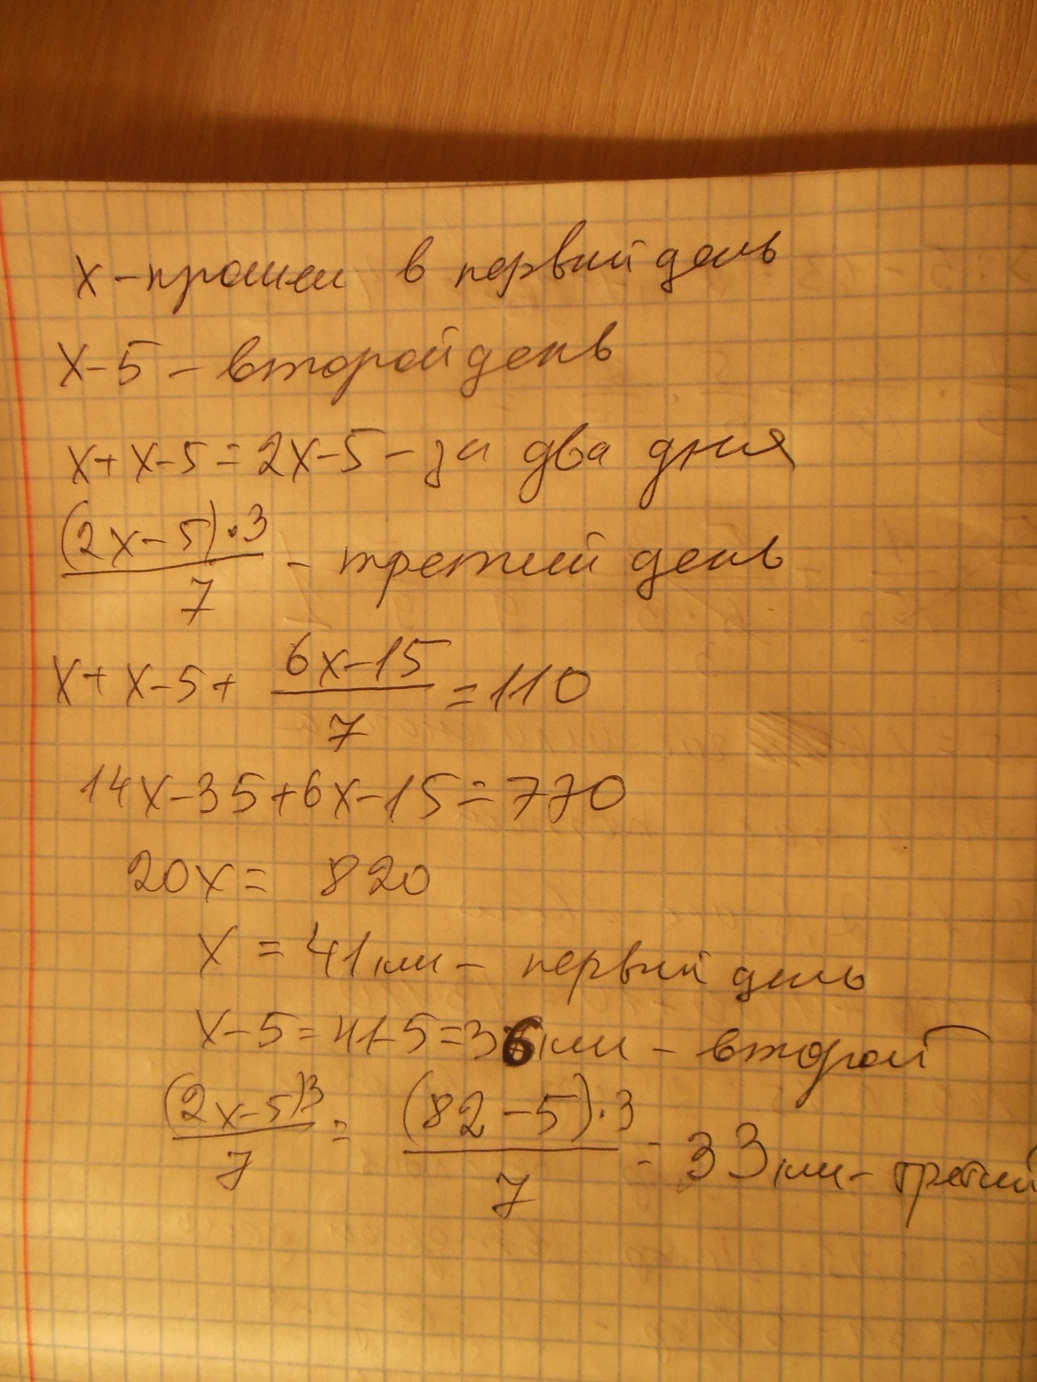 x - прошел в первый день
x-5 - второй день
x+x-5=2x-5 - за два дня
(2x-5)·3/7 - третий день
x+x-5+ (6x-15)/7 =110
14x-35+6x-15=770
20x= 820
x = 41 км - первый день
x-5=41-5=36 км - второй
(2x-5)·3/7 = (82-5)·3/7 = 33 км - третий